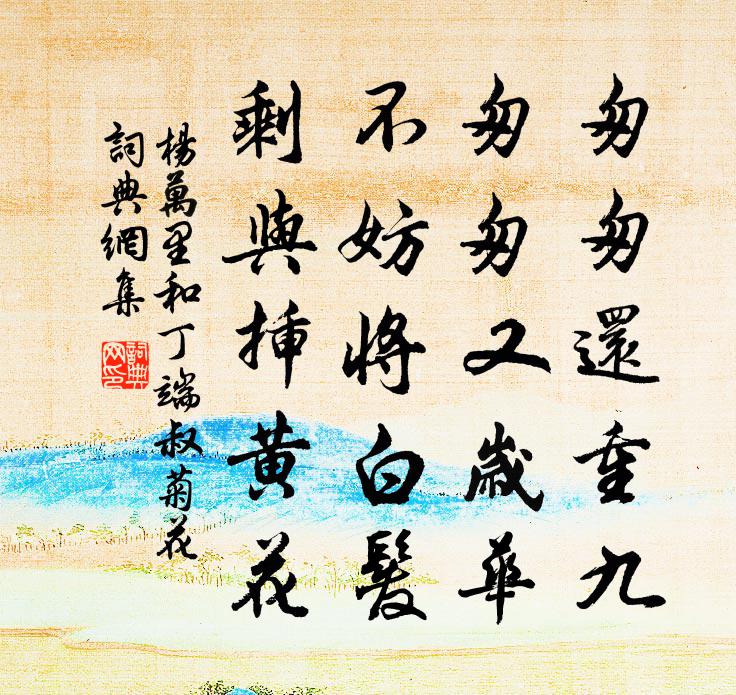 匆匆還重九
匆匆又歲華
不妨將白髮
剩與挿黃花
楊萬里和丁端叔菊花
詞典網集
詞典網印